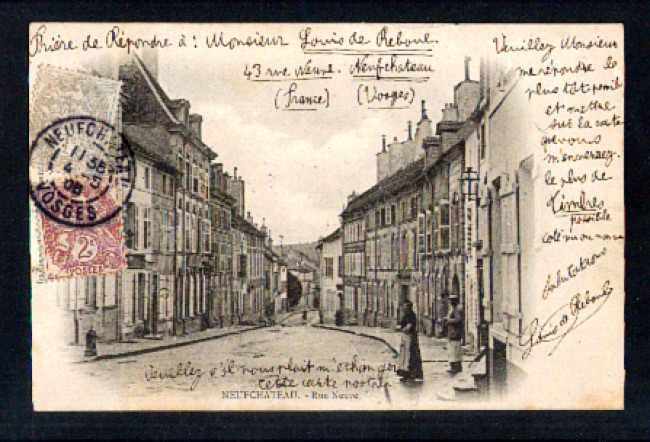 Prière de Répondre à : Monsieur Louis de Reboul.
43 rue Neuve. Neufchateau
(France) (Vosges)
Veuillez Monsieur
me répondre le
plus tôt possib
et mettre
sur la carte
que vous
m'enverrez
le plus de
Timbres
possible
coté
Salutations
Louis de Reboul
NEUFCHATEAU
11 35
4 -5
06
VOSGES
2c
POSTES
Veuillez s'il vous plait m'échanger
cette carte postale
NEUFCHATEAU. - Rue Neuve.